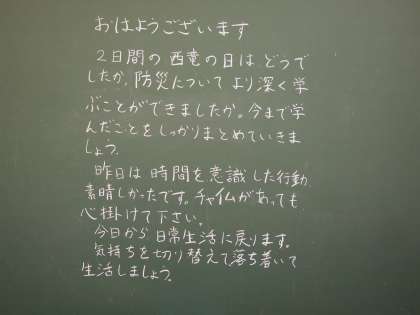 おはようございます
2日間の西竜の日は、どうで
したか。防災についてより深く学
ぶことができましたか。今まで学
んだことをしっかりまとめていきま
しょう。
昨日は時間を意識した行動、
素晴しかったです。チャイムがあっても
心掛けて下さい。
今日から日常生活に戻ります。
気持ちを切り替えて落ち着いて
生活しましょう。